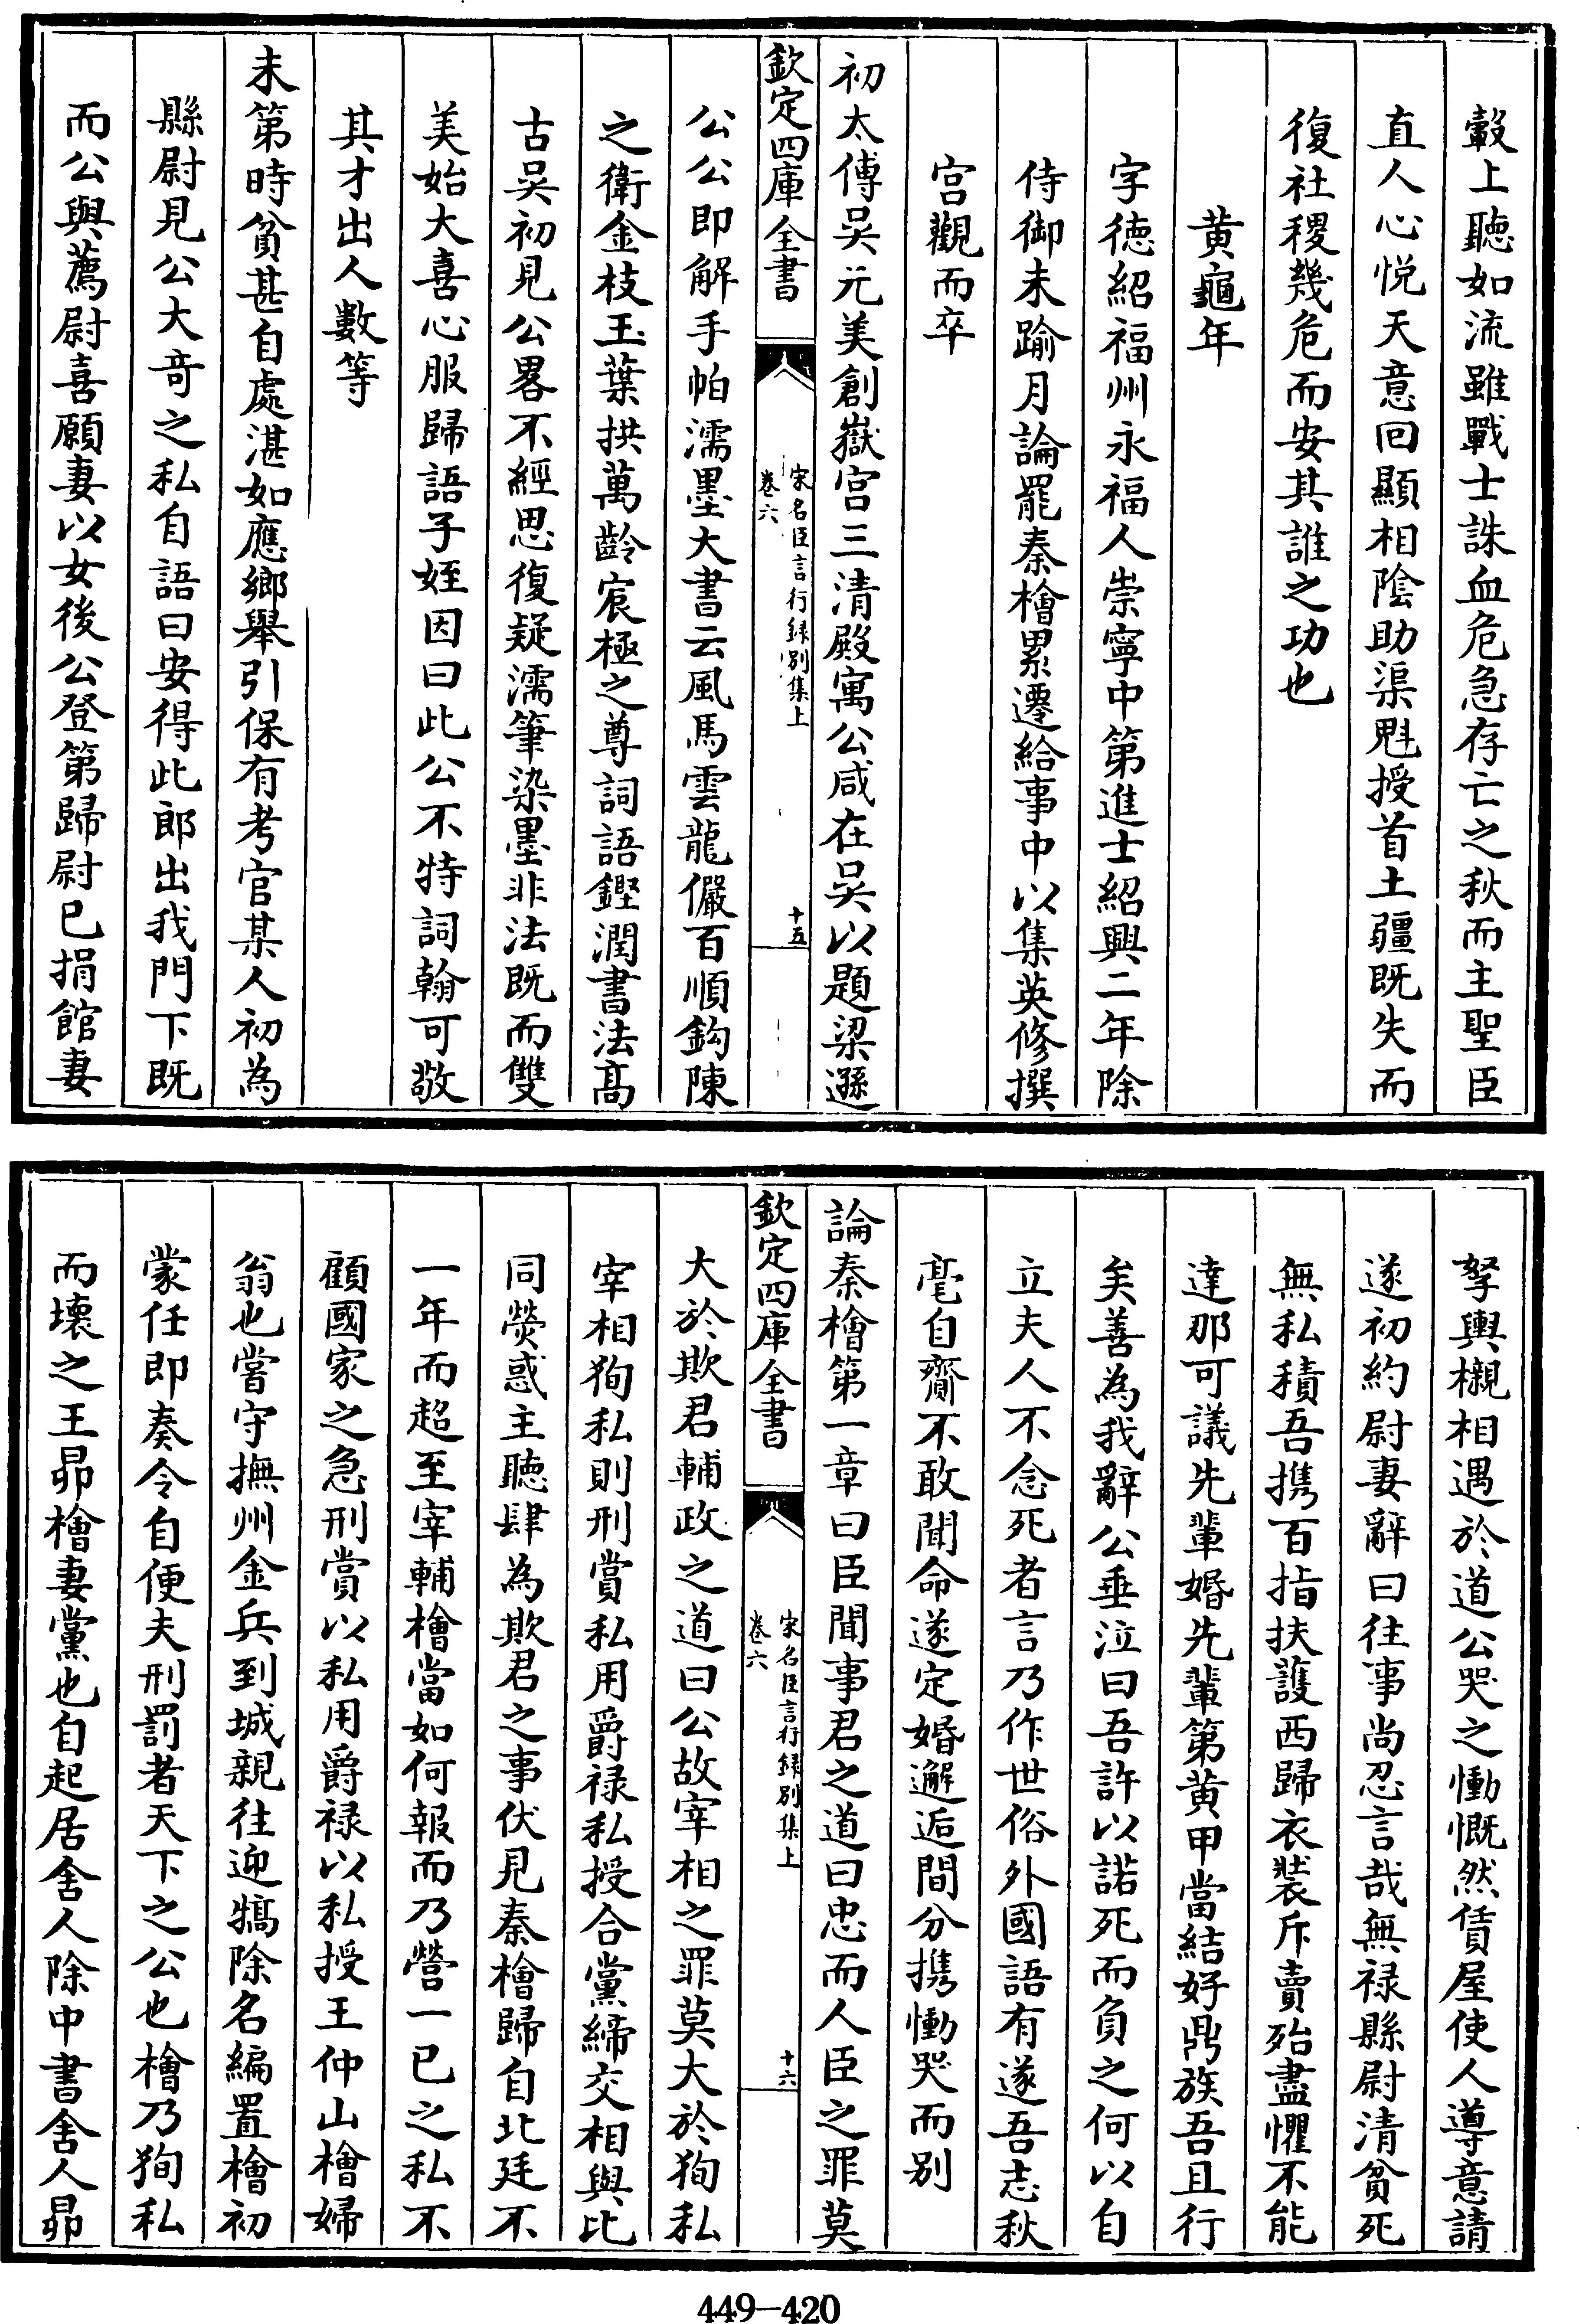 轂上聽如流雖戰士誅血危急存亡之秋而主聖臣
直人心悦天意回顯相隂助渠魁授首土疆既失而
復社稷幾危而安其誰之功也
黄龜年
字徳紹福州永福人崇寧中第進士紹興二年除
侍御未踰月論罷秦檜累遷給事中以集英修撰
宫觀而卒
初太傅吴元美創嶽宫三清殿寓公咸在吴以題梁遜
欽定四庫全書
宋名臣言行録别集上
卷六
十五
公公即解手帕濡墨大書云風馬雲龍儼百順鈎陳
之衛金枝玉葉拱萬齡宸極之尊詞語鏗潤書法髙
古吴初見公畧不經思復疑濡筆染墨非法既而雙
美始大喜心服歸語子姪因曰此公不特詞翰可敬
其才出人數等
未第時貧甚自處湛如應鄉舉引保有考官某人初為
縣尉見公大竒之私自語曰安得此郎出我門下既
而公與薦尉喜願妻以女後公登第歸尉已捐館妻
孥輿櫬相遇於道公哭之慟慨然賃屋使人遵意請
遂初約尉妻辭曰往事尚忍言哉無禄縣尉清貧死
無私積吾携百指扶護西歸衣裝斥賣殆盡懼不能
達那可議先輩婚先輩第黄甲當結好鼎族吾且行
矣善為我辭公垂泣曰吾許以諾死而負之何以自
立夫人不念死者言乃作世俗外國語有遂吾志秋
毫自齎不敢聞命遂定婚邂逅間分携慟哭而别
論秦檜第一章曰臣聞事君之道曰忠而人臣之罪莫
欽定四庫全書
宋名臣言行録别集上
卷六
十六
大於欺君輔政之道曰公故宰相之罪莫大於狥私
宰相狥私則刑賞私用爵禄私授合黨締交相與比
同熒惑主聽肆為欺君之事伏見秦檜歸自北廷不
一年而超至宰輔檜當如何報而乃營一已之私不
顧國家之急刑賞以私用爵禄以私授王仲山檜婦
翁也嘗守撫州金兵到城親往迎犒除名編置檜初
蒙任即奏令自便夫刑罰者天下之公也檜乃狥私
而壞之王昴檜妻黨也自起居舍人除中書舍人昴
449—420